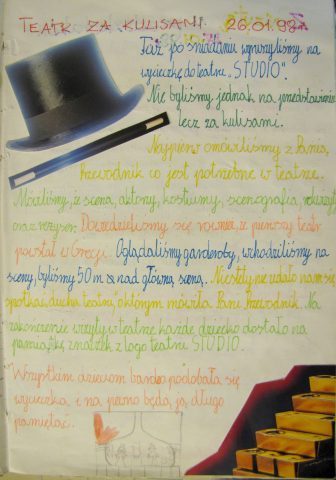 TEATR ZA KULISAMI 26.01.98r.
Już po śniadaniu wyruszyliśmy na
wycieczkę do teatru „STUDIO".
Nie byliśmy jednak na przedstawieniu
lecz za kulisami.
Najpierw omówiliśmy z Panią
Przewodnik co jest potrzebne w teatrze.
Mówiliśmy, że scena, aktorzy, kostiumy, scenografia, rekwizyty
oraz reżyser. Dowiedzieliśmy się również, że pierwszy teatr
powstał w Grecji. Oglądaliśmy garderoby, wchodziliśmy na
scenę, byliśmy 50 m nad główną sceną. Niestety nie udało nam się
spotkać ducha teatru, o którym mówiła Pani Przewodnik. Na
zakończenie wizyty w teatrze każde dziecko dostało na
pamiątkę znaczek z logo teatru STUDIO.
Wszystkim dzieciom bardzo podobała się
wycieczka i na pewno będą ją długo
pamiętać.